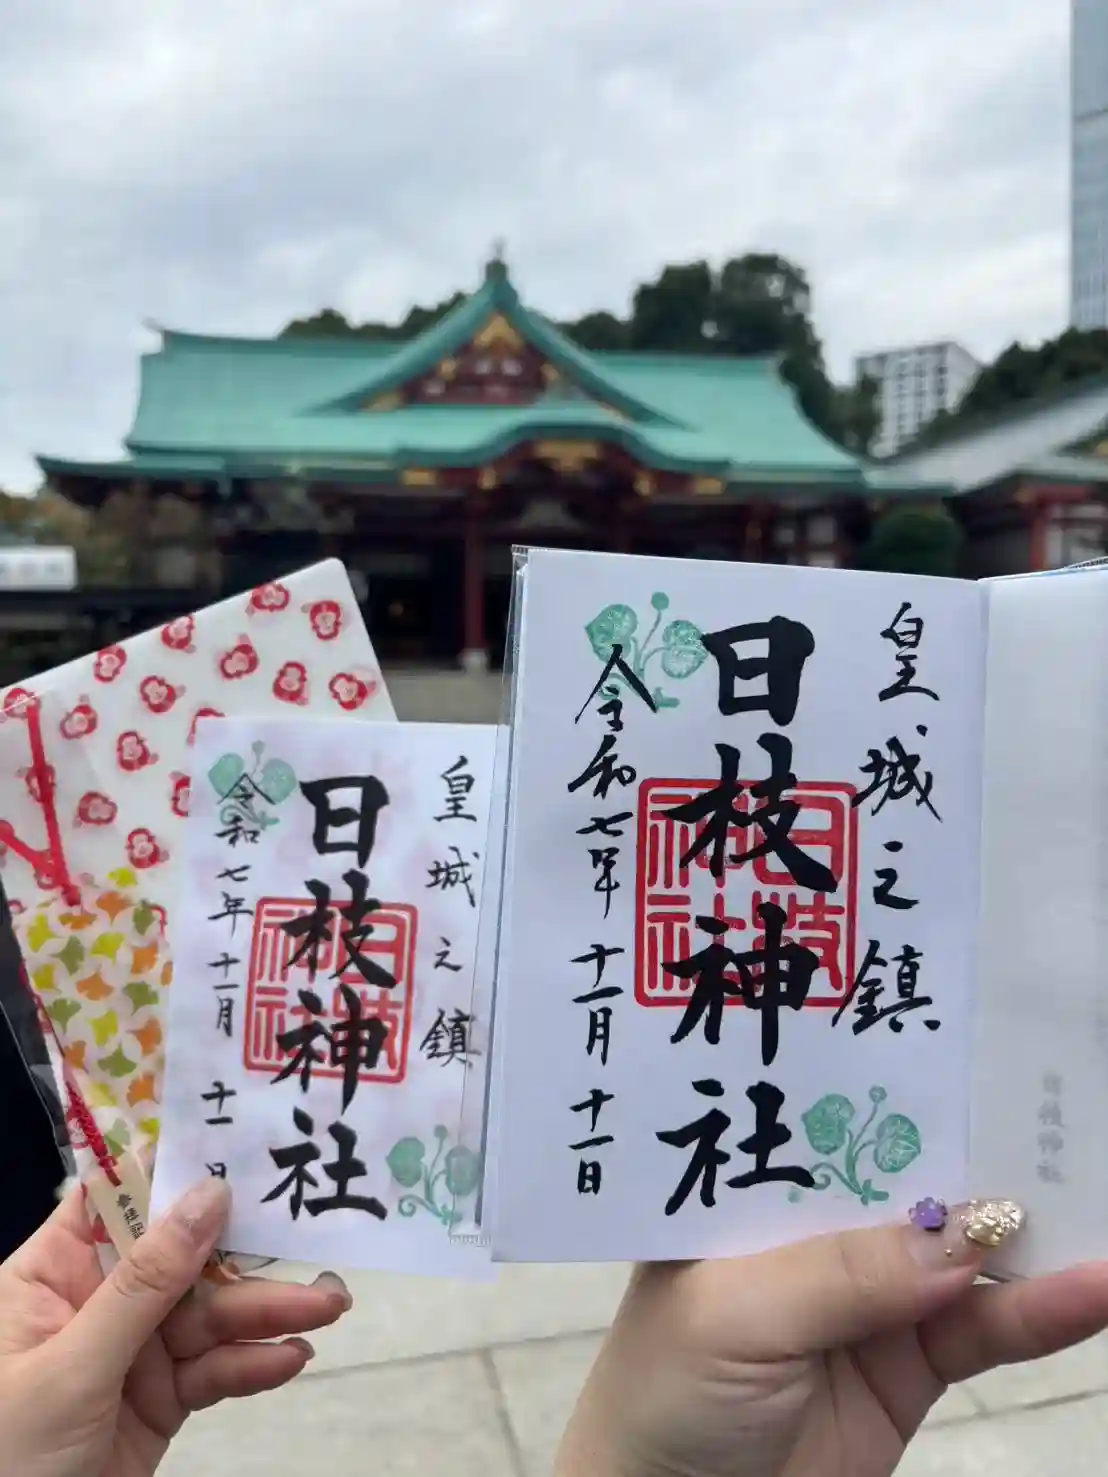 皇城之鎮
日枝神社
日枝神社
令和七年十一月十一日
皇城之鎮
日枝神社
日枝神社
令和七年十一月十一日
日枝神社